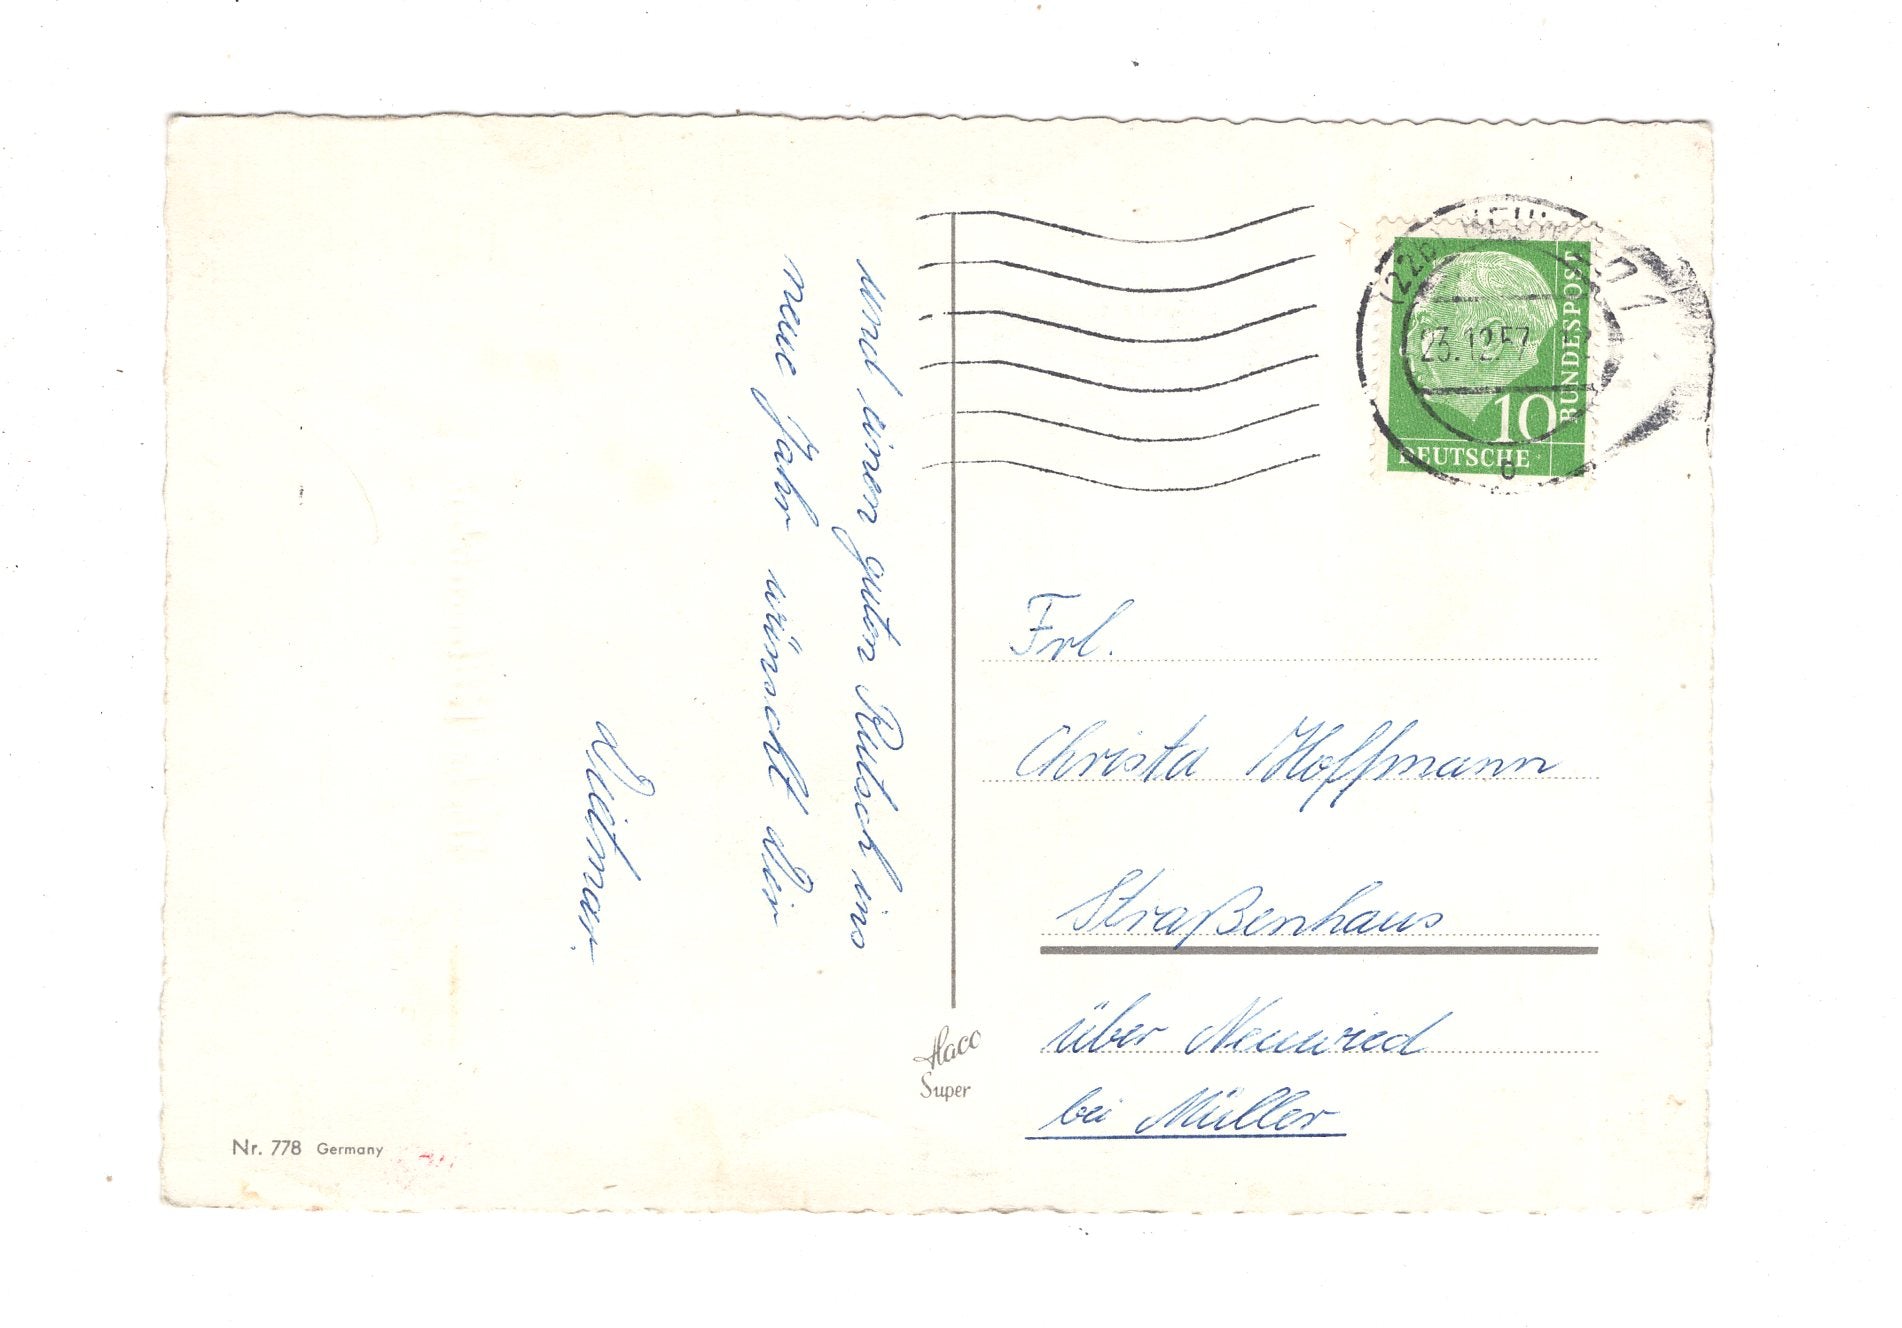 und einen guten Rutsch ins
neue Jahr wünscht Dir
Dietmar.
(22b) NEUW
23.12.57
b
10
DEUTSCHE
BUNDESPOST
Frl.
Christa Hoffmann
Straßenhaus
über Neuwied
bei Müller
Haco
Super
Nr. 778 Germany